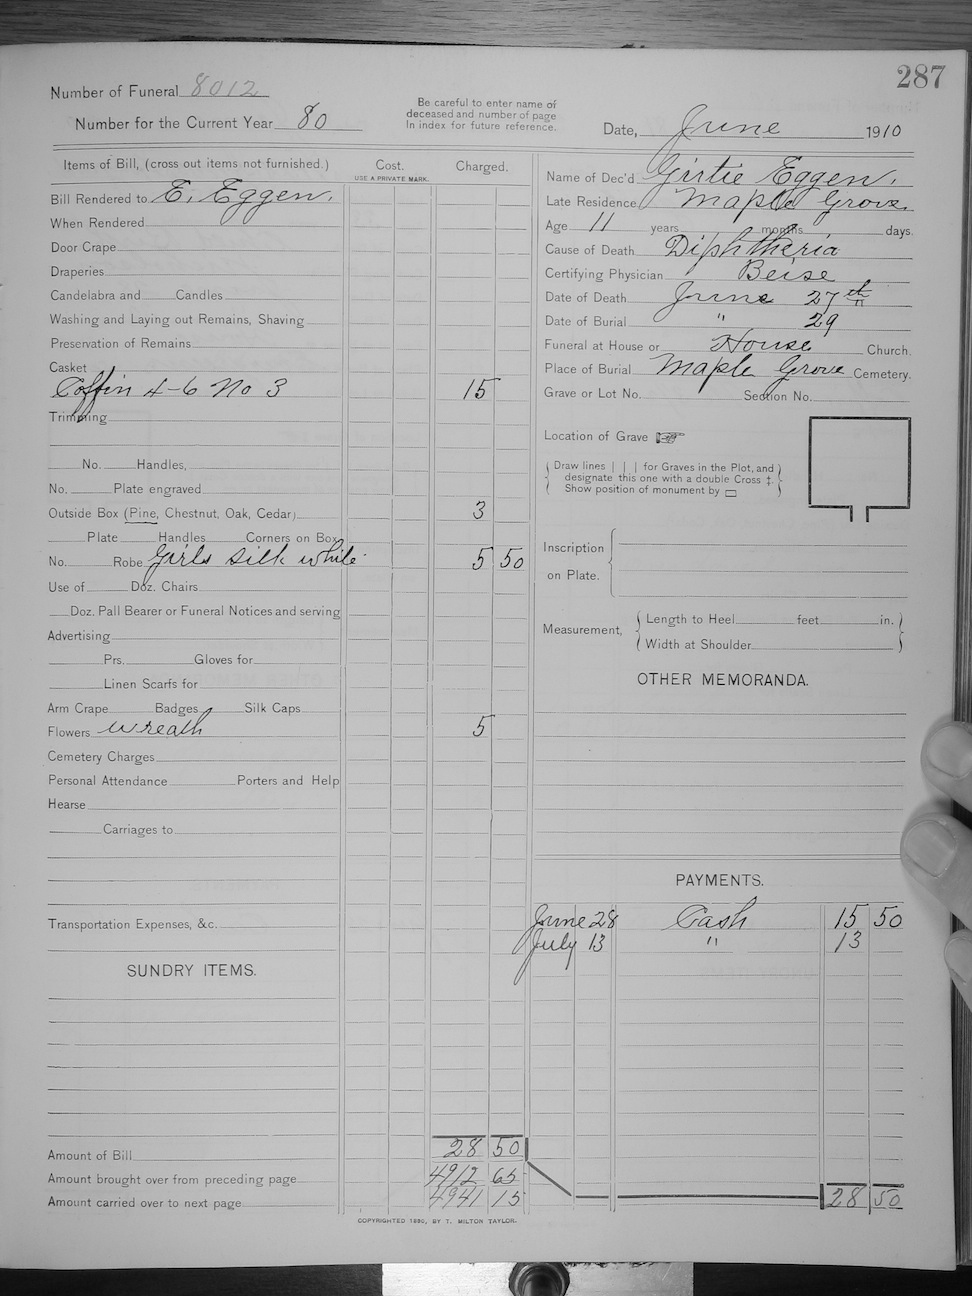 287
Number of Funeral 8012
Number for the Current Year 80
Be careful to enter name of
deceased and number of page
In index for future reference.
Date, June 1910
Items of Bill, (cross out items not furnished.) Cost. Charged.
USE A PRIVATE MARK.
Bill Rendered to E. Eggen.
When Rendered
Door Crape
Draperies
Candelabra and Candles
Washing and Laying out Remains, Shaving
Preservation of Remains
Casket
Coffin 4-6 No 3 15
Trimming
No. Handles,
No. Plate engraved
Outside Box (Pine, Chestnut, Oak, Cedar) 3
Plate Handles Corners on Box
No. Robe Girls silk white 5 50
Use of Doz. Chairs
Doz. Pall Bearer or Funeral Notices and serving
Advertising
Prs. Gloves for
Linen Scarfs for
Arm Crape Badges Silk Caps
Flowers wreath 5
Cemetery Charges
Personal Attendance Porters and Help
Hearse
Carriages to
Transportation Expenses, &c.
SUNDRY ITEMS.
Amount of Bill 28 50
Amount brought over from preceding page 4912 65
Amount carried over to next page 4941 15
Name of Dec'd Girtie Eggen.
Late Residence Maple Grove.
Age 11 years months days.
Cause of Death Diphtheria
Certifying Physician Beise
Date of Death June 27th
Date of Burial " 29
Funeral at House or House Church.
Place of Burial Maple Grove Cemetery.
Grave or Lot No. Section No.
Location of Grave
Draw lines | | | for Graves in the Plot, and
designate this one with a double Cross ‡.
Show position of monument by ▭
Inscription
on Plate.
Measurement, Length to Heel feet in.
Width at Shoulder
OTHER MEMORANDA.
PAYMENTS.
June 28 Cash 15 50
July 13 " 13
28 50
COPYRIGHTED 1890, BY T. MILTON TAYLOR.